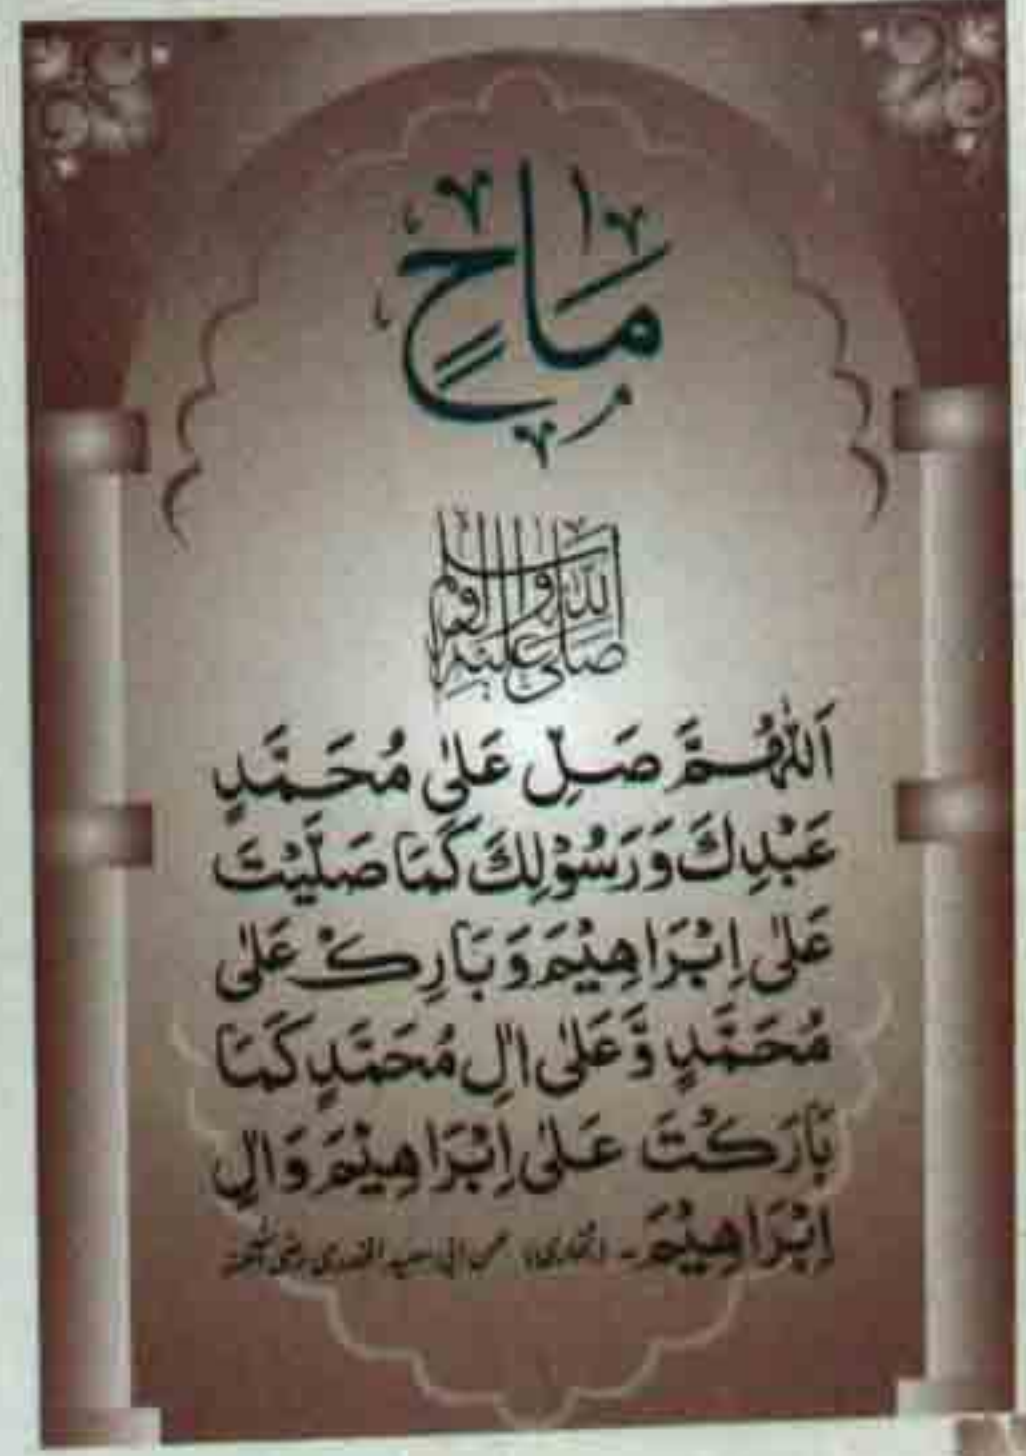 مَاحٍ
صَلَّى اللهُ عَلَيْهِ وَآلِهِ وَسَلَّم
اَللّٰهُمَّ صَلِّ عَلٰى مُحَمَّدٍ
عَبْدِكَ وَرَسُوْلِكَ كَمَا صَلَّيْتَ
عَلٰى اِبْرَاهِيْمَ وَبَارِكْ عَلٰى
مُحَمَّدٍ وَّعَلٰى اٰلِ مُحَمَّدٍ كَمَا
بَارَكْتَ عَلٰى اِبْرَاهِيْمَ وَاٰلِ
اِبْرَاهِيْمَ۔ (بخاری، عن ابی سعید الخدری رضی اللہ عنہ